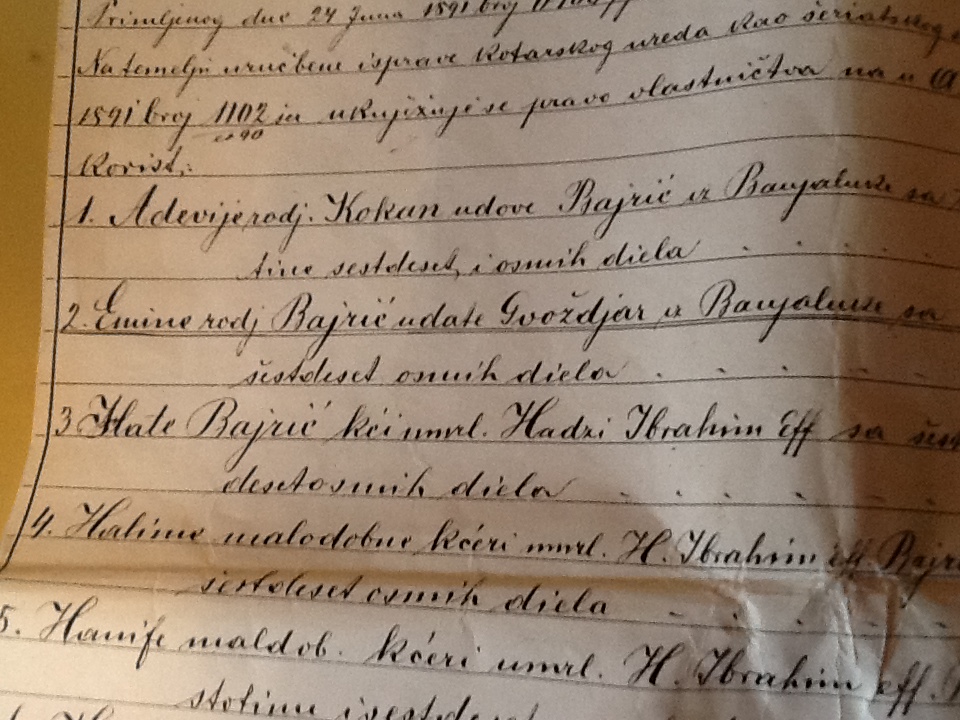 Primljenog dne 24 Juna 1891 broj
Na temelju uručbene isprave Kotarskog ureda kao šeriatskog
1891 broj 1102 ia uknjižuje se pravo vlastničtva na u A
ex 90
Korist:
1. Adevije rodj. Kokan udove Bajrić iz Banjaluke sa
tine sestdeset i osmih diela . . . .
2. Emine rodj Bajrić udate Gvoždjar iz Banjaluke sa
šestdeset osmih diela . . . . .
3 Hate Bajrić kći umrl. Hadzi Ibrahim Eff sa šest
desetosmih diela . . . . .
4. Halime malodobne kćeri umrl. H. Ibrahim eff Bajri
šestdeset osmih diela . . . . .
5. Hanife maldob. kćeri umrl. H. Ibrahim eff.
stotinu i šestdeset